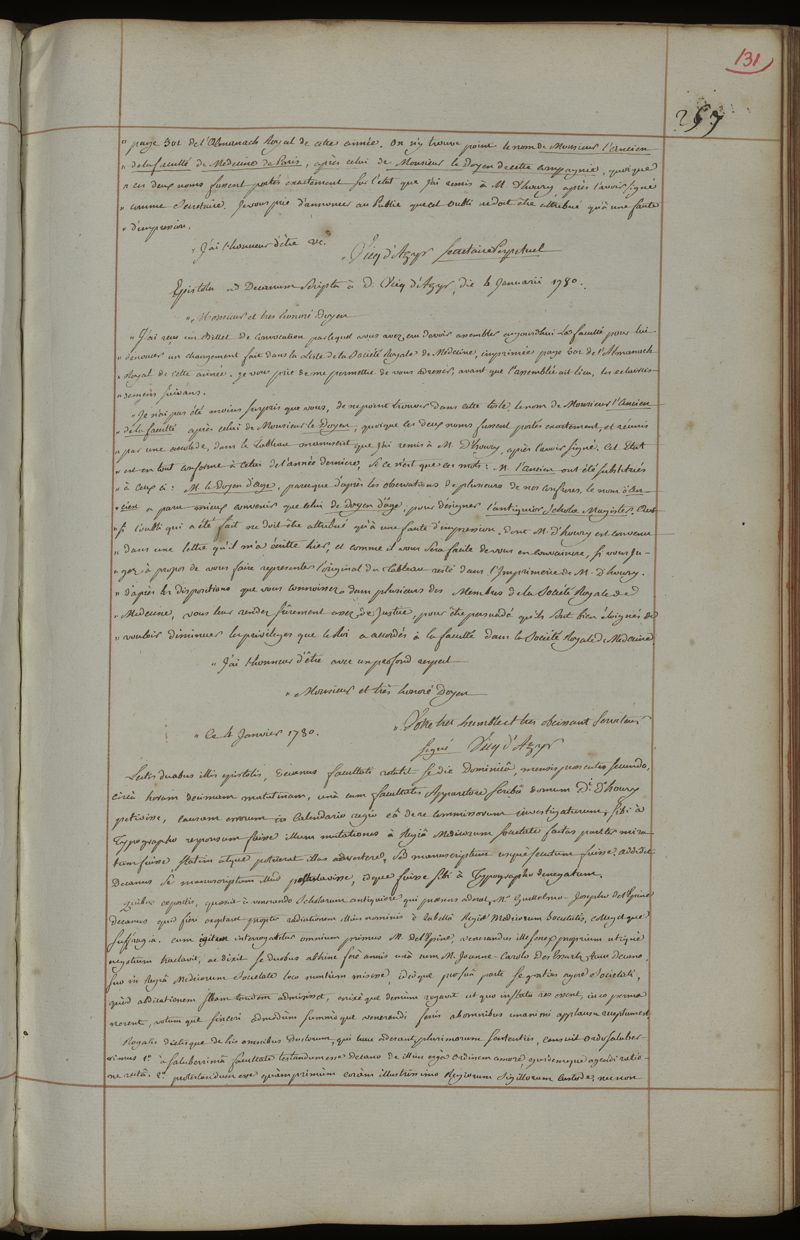 131
257
" page 301 de l'Almanach Royal de cette année. On n'y trouve point le nom de Monsieur l'ancien
" de la faculté de Medecine de Paris, après celui de Monsieur le Doyen de cette compagnie, quoique
" ces deux noms fussent portés exactement sur l'état que j'ai remis à M. D'houry, après l'avoir signé
" comme Secretaire. Je vous prie d'annoncer au Public que cet oubli ne doit être attribué qu'à une faute
" d'impression.
" J'ai l'honneur d'être &c.
" Vicq d'Azyr Secretaire Perpetuel
Epistola ad Decanum Scripta à D. Vicq d'Azyr, die 4 Januarii 1780.
" Monsieur et très honoré Doyen
" J'ai reçu un Billet de convocation par lequel vous avez cru devoir assembler aujourd'hui la faculté pour lui
" dénoncer un changement fait dans la Liste de la Société Royale de Médecine, imprimée page 301 de l'Almanach
" Royal de cette année. Je vous prie de me permettre de vous adresser, avant que l'assemblée ait lieu, les eclaircis-
" semens suivans.
" Je n'ai pas été moins surpris que vous, de ne point trouver dans cette Liste le nom de Monsieur l'ancien
" de la faculté après celui de Monsieur le Doyen, quoique ces deux noms fussent portés exactement, et réunis
" par une accolade, dans le Tableau manuscrit que j'ai remis à M. D'houry, après l'avoir signé. Cet Etat
" est en tout conforme à celui de l'année derniere, si ce n'est que ces mots : M. l'ancien ont été substitués
" à ceux ci : M. le Doyen d'age, parceque d'après les observations de plusieurs de nos confreres, le nom d'An-
" cien a paru mieux convenir que celui de Doyen d'age, pour désigner l'antiquior Scholæ Magister. Ainsi
" si l'oubli qui a été fait ne doit être attribué qu'à une faute d'impression, dont M. D'houry est convenu
" dans une lettre qu'il m'a écritte hier, et comme il vous sera facile de vous en convaincre, si vous ju-
" gez à propos de vous faire representer l'original du Tableau resté dans l'Imprimerie de M. D'houry.
" D'après les dispositions que vous connoissez dans plusieurs des Membres de la Société Royale de
" Médecine, vous leur rendez sûrement assez de Justice, pour être persuadé qu'ils sont bien éloignés de
" vouloir diminuer les privileges que le Roi a accordés à la faculté dans la Société Royale de Medecine.
" J'ai l'honneur d'être avec un profond respect
" Monsieur et très honoré Doyen
" Votre très humble et très obeissant Serviteur
" Ce 4 Janvier 1780.
Signé Vicq d'Azyr
Lectis duabus illis epistolis, Decanus facultati retulit se die Dominicâ, mensis præsentis secundo,
circà horam decimam matutinam, unà cum facultatis Apparitore scribâ domum Di. D'houry
petiisse, causam errorum in Calendario regio eâ de re commissorum investigaturum; sibi à
Typographo responsum fuisse illum mutationes à Regiâ Medicorum Societate factas pariter mira-
tum fuisse statim atque potuerat illas advertere, sed manuscriptum usque secutum fuisse. Addidit
Decanus se manuscriptum illud postulavisse, idque fuisse sibi à Typographo denegatum.
Quibus expositis, quæsiit à venerando Scholarum antiquiore qui præsens aderat, Mo. Guillelmo-Josepho de l'Epine
decanus quid fieri cogitaret propter radiationem illius nominis è tabellâ Regiæ Medicorum Societatis, collegitque
suffragia. Cum igitur interrogabatur omnium primus M. de l'Epine, venerandus ille senex proprium utique
negotium tractavit, ac dixit se duobus abhinc ferè annis unà cum M. Joanne-Carolo Des Essartz tunc Decano,
suo in Regiâ Medicorum Societate loco nuntium misisse, idcoque pro suâ parte se gratias agere Societati,
quòd abdicationem illam tandem admisisset, enixè que demùm rogavit ut quo in statu res essent, in eo perma
nerent, votum que sinceri admodùm summisque venerandi senis ab omnibus unanimi applausu exceptum est.
Rogatis dictisque de his omnibus Doctorum, qui tunc aderant, plurimorum sententiis, censuit ordo saluber-
rimus 1o. à saluberrimâ facultate testandum esse decano de illius ergà ordinem amore, ejusdemque agendi ratio-
ne rectâ. 2o. protestandum esse quàm primùm coràm illustrissimo Regiorum Sigillorum Custode, nec non